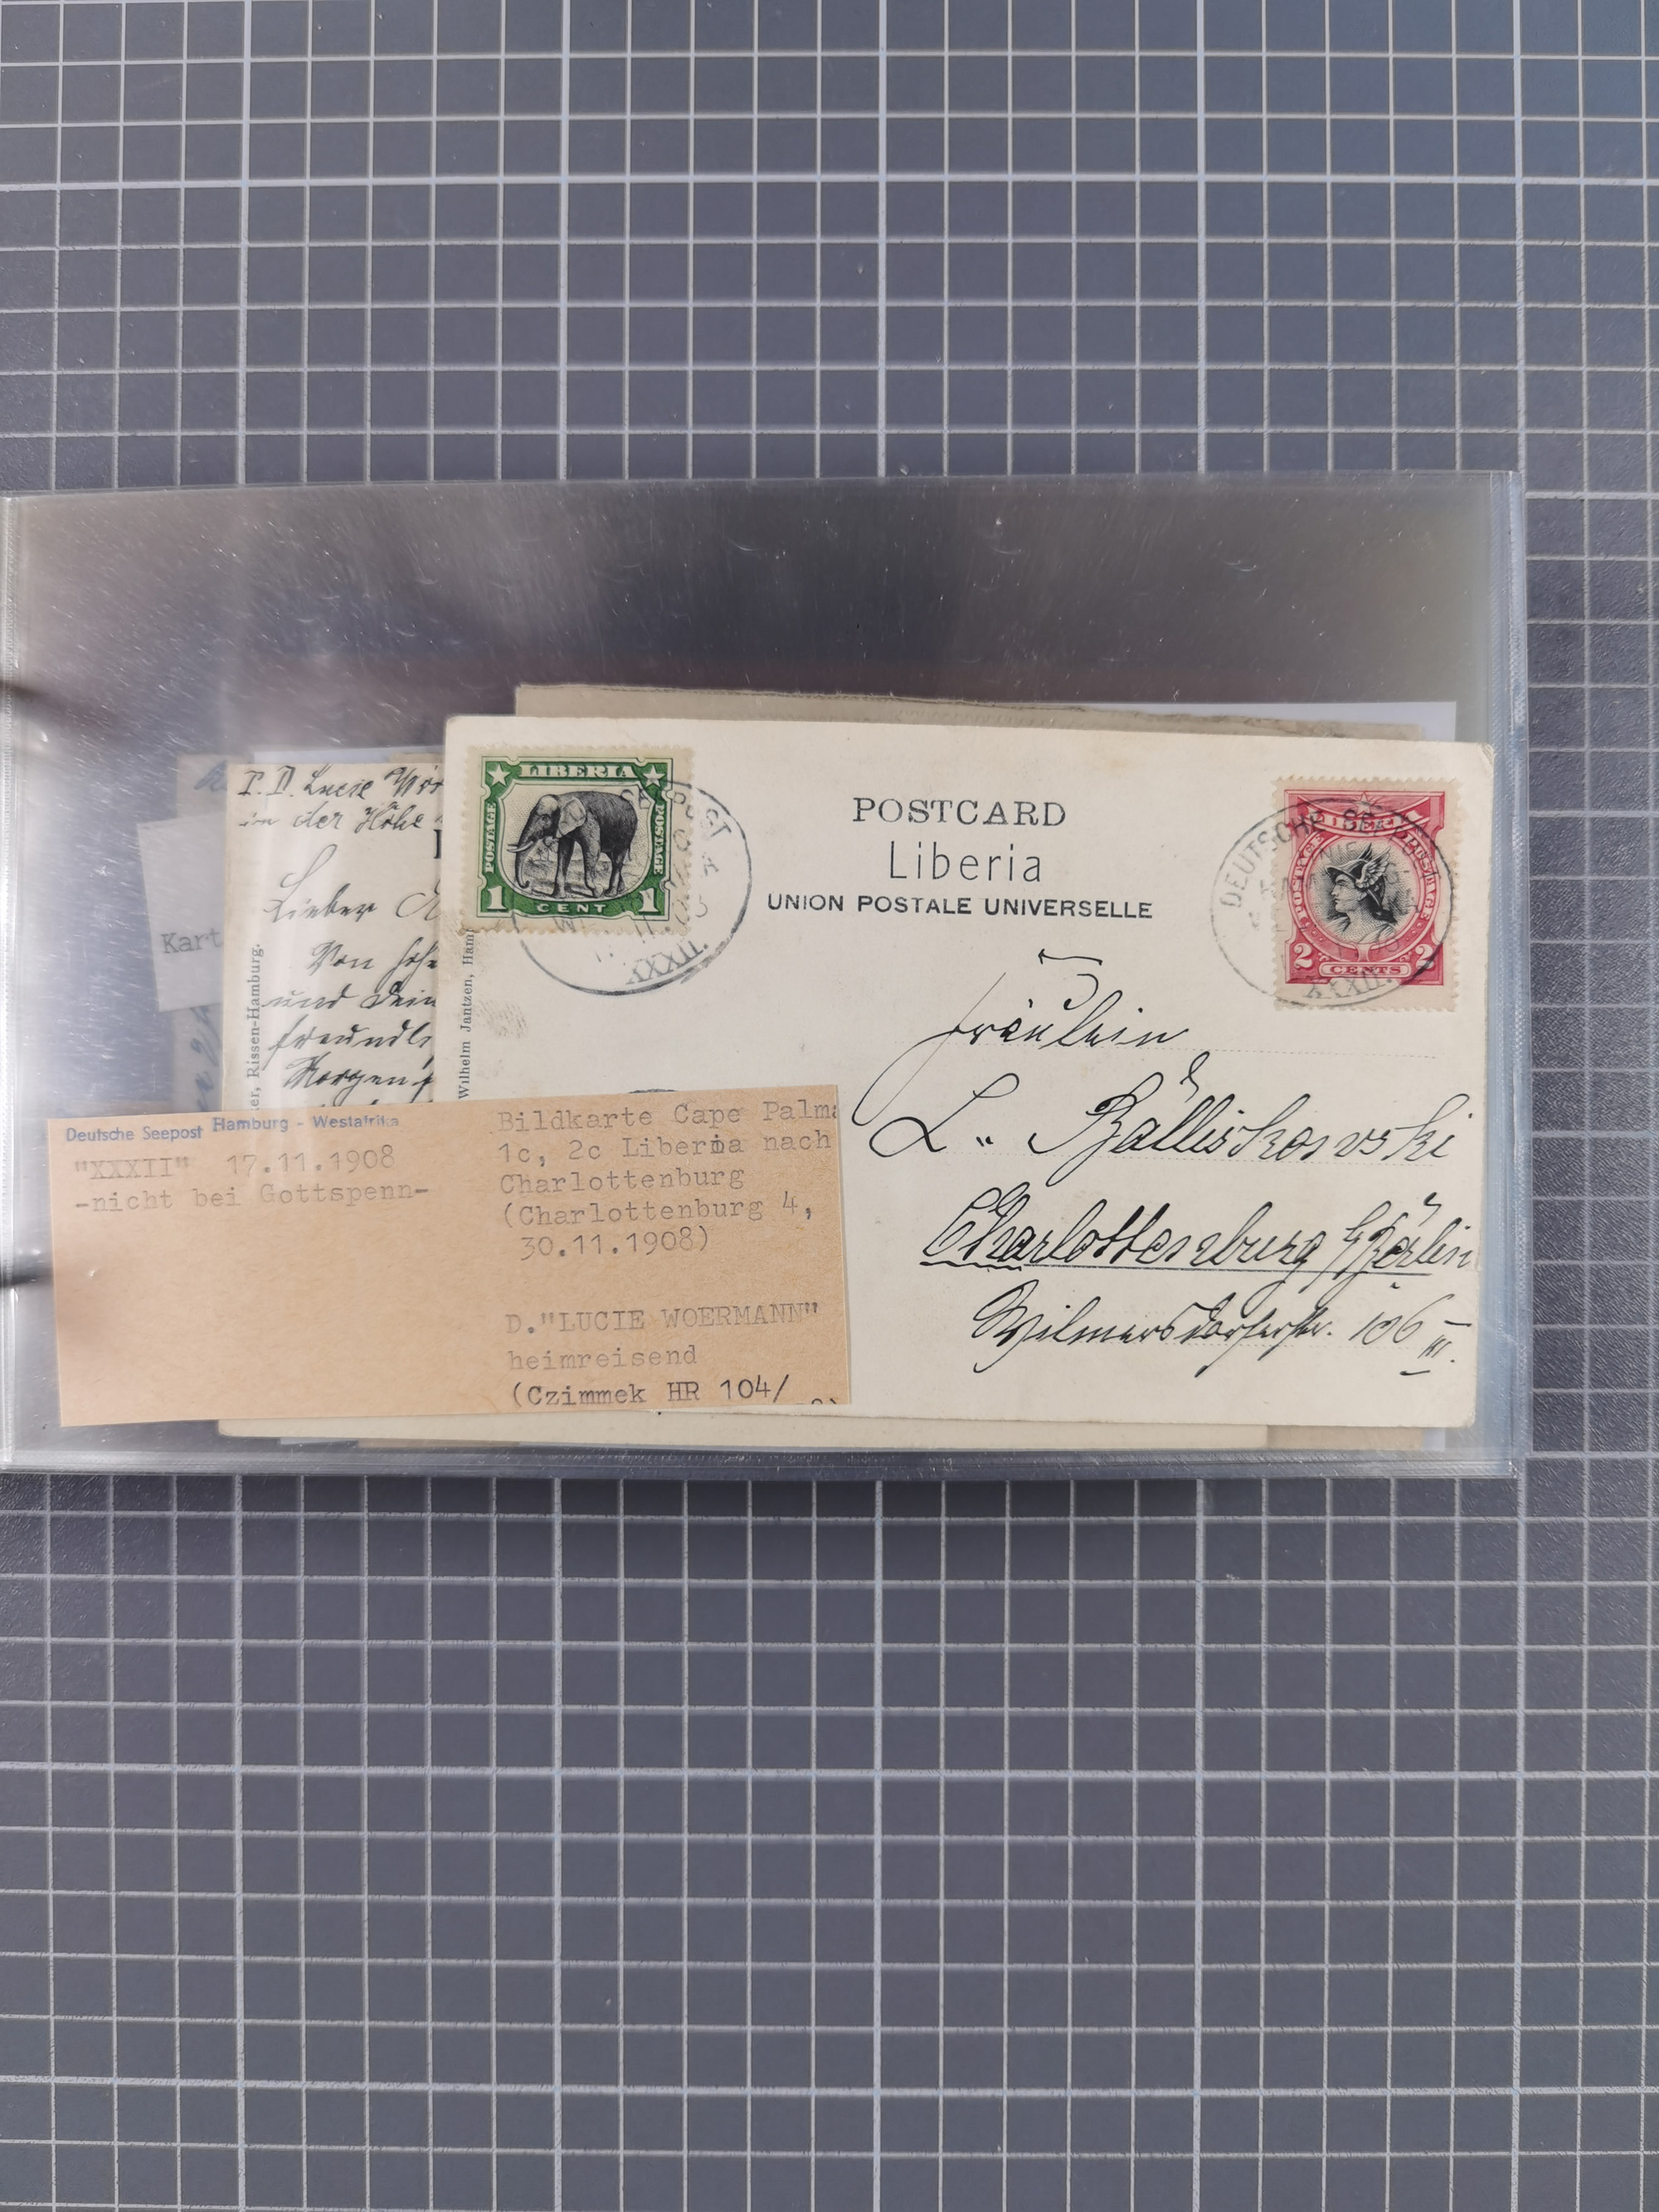 POSTCARD
Liberia
UNION POSTALE UNIVERSELLE
LIBERIA
POSTAGE
POSTAGE
1 CENT 1
SEEPOST
XXXII.
DEUTSCHE SEEPOST
2 CENTS 2
XXXII.
Fräulein
L. Balliskowski
Charlottenburg b/Berlin
Wilmersdorferstr. 106 III.
Wilhelm Jantzen, Ham
P. D. Lucie Wör
in der Höhe
Lieber
Von
und Dein
freundl
Morgen
er, Rissen-Hamburg.
Kart
Deutsche Seepost Hamburg - Westafrika
"XXXII" 17.11.1908
-nicht bei Gottspenn-
Bildkarte Cape Palma
1c, 2c Liberia nach
Charlottenburg
(Charlottenburg 4,
30.11.1908)
D."LUCIE WOERMANN"
heimreisend
(Czimmek HR 104/